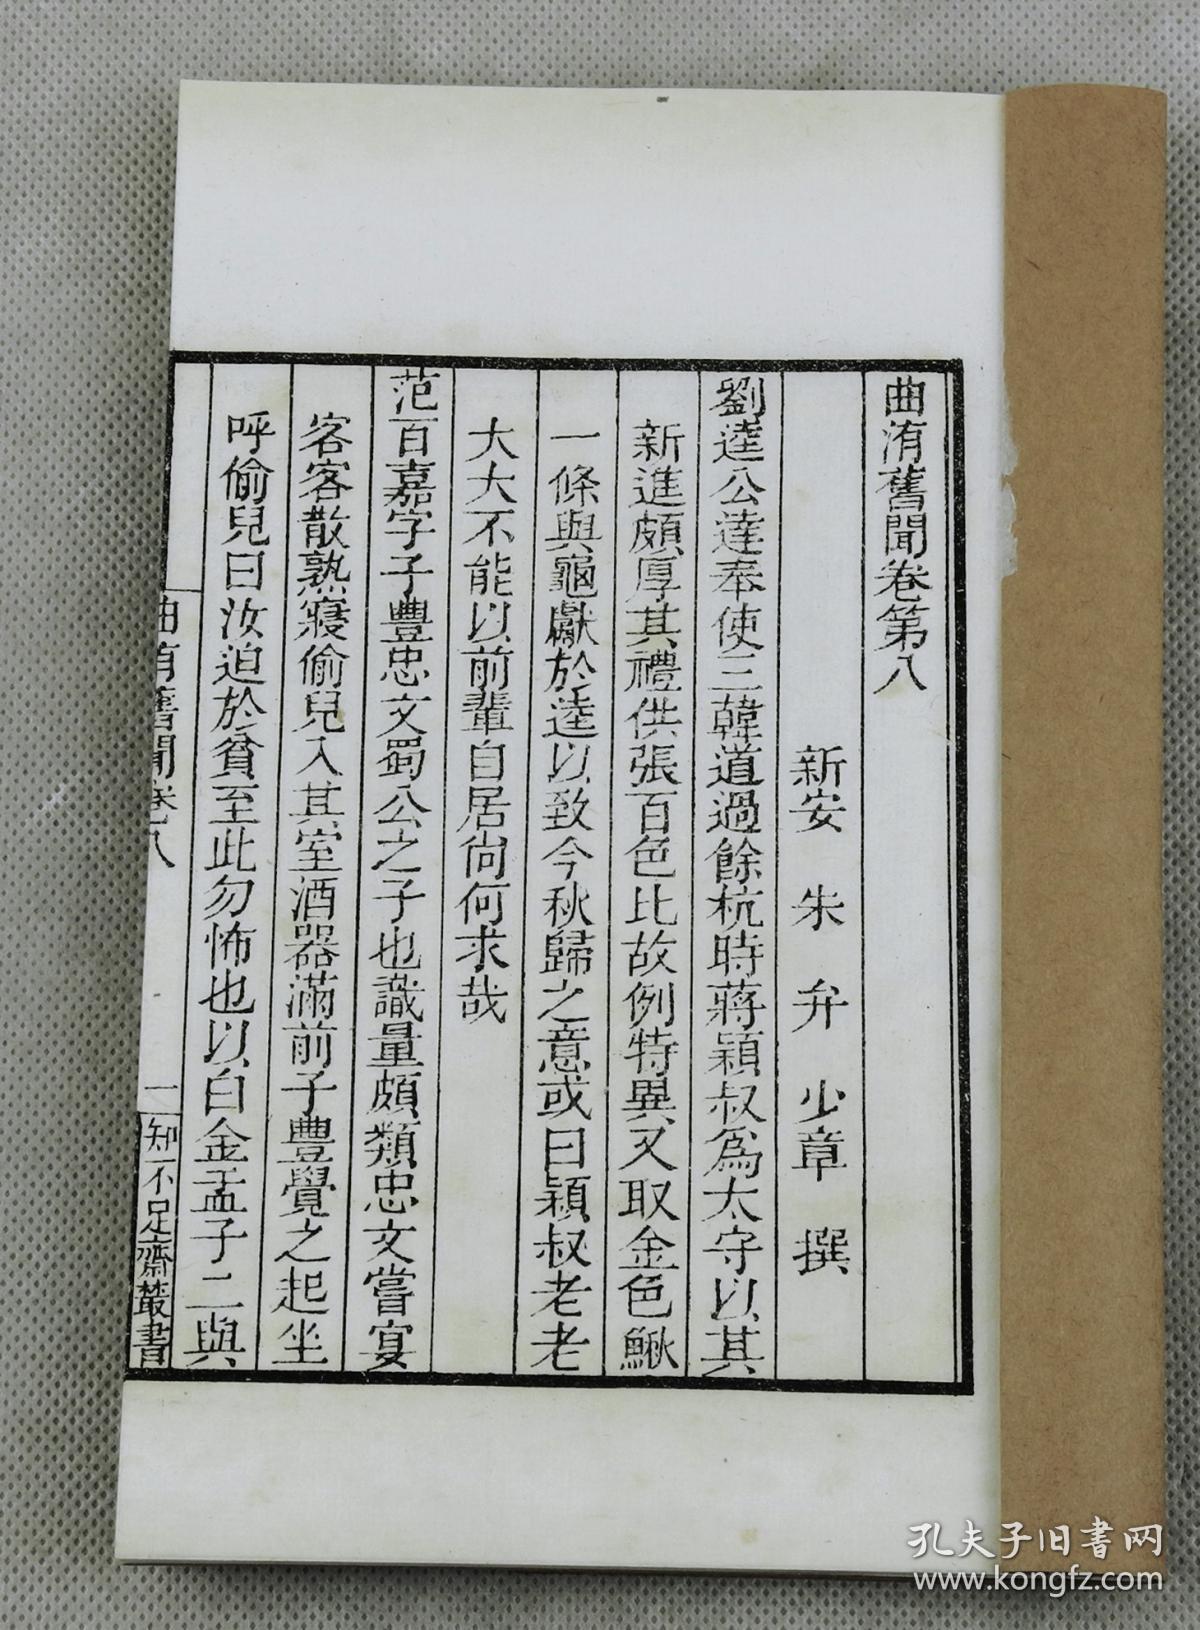 曲洧舊聞卷第八
新安 朱 弁 少章 撰
劉逵公達奉使三韓道過餘杭時蔣穎叔爲太守以其
新進頗厚其禮供張百色比故例特異又取金色鰍
一條與龜獻於逵以致今秋歸之意或曰穎叔老老
大大不能以前輩自居尚何求哉
范百嘉字子豐忠文蜀公之子也識量頗類忠文嘗宴
客客散熟寢偷兒入其室酒器滿前子豐覺之起坐
呼偷兒曰汝迫於貧至此勿怖也以白金盂子二與
曲洧舊聞卷八 一 知不足齋叢書
孔夫子旧书网
www.kongfz.com